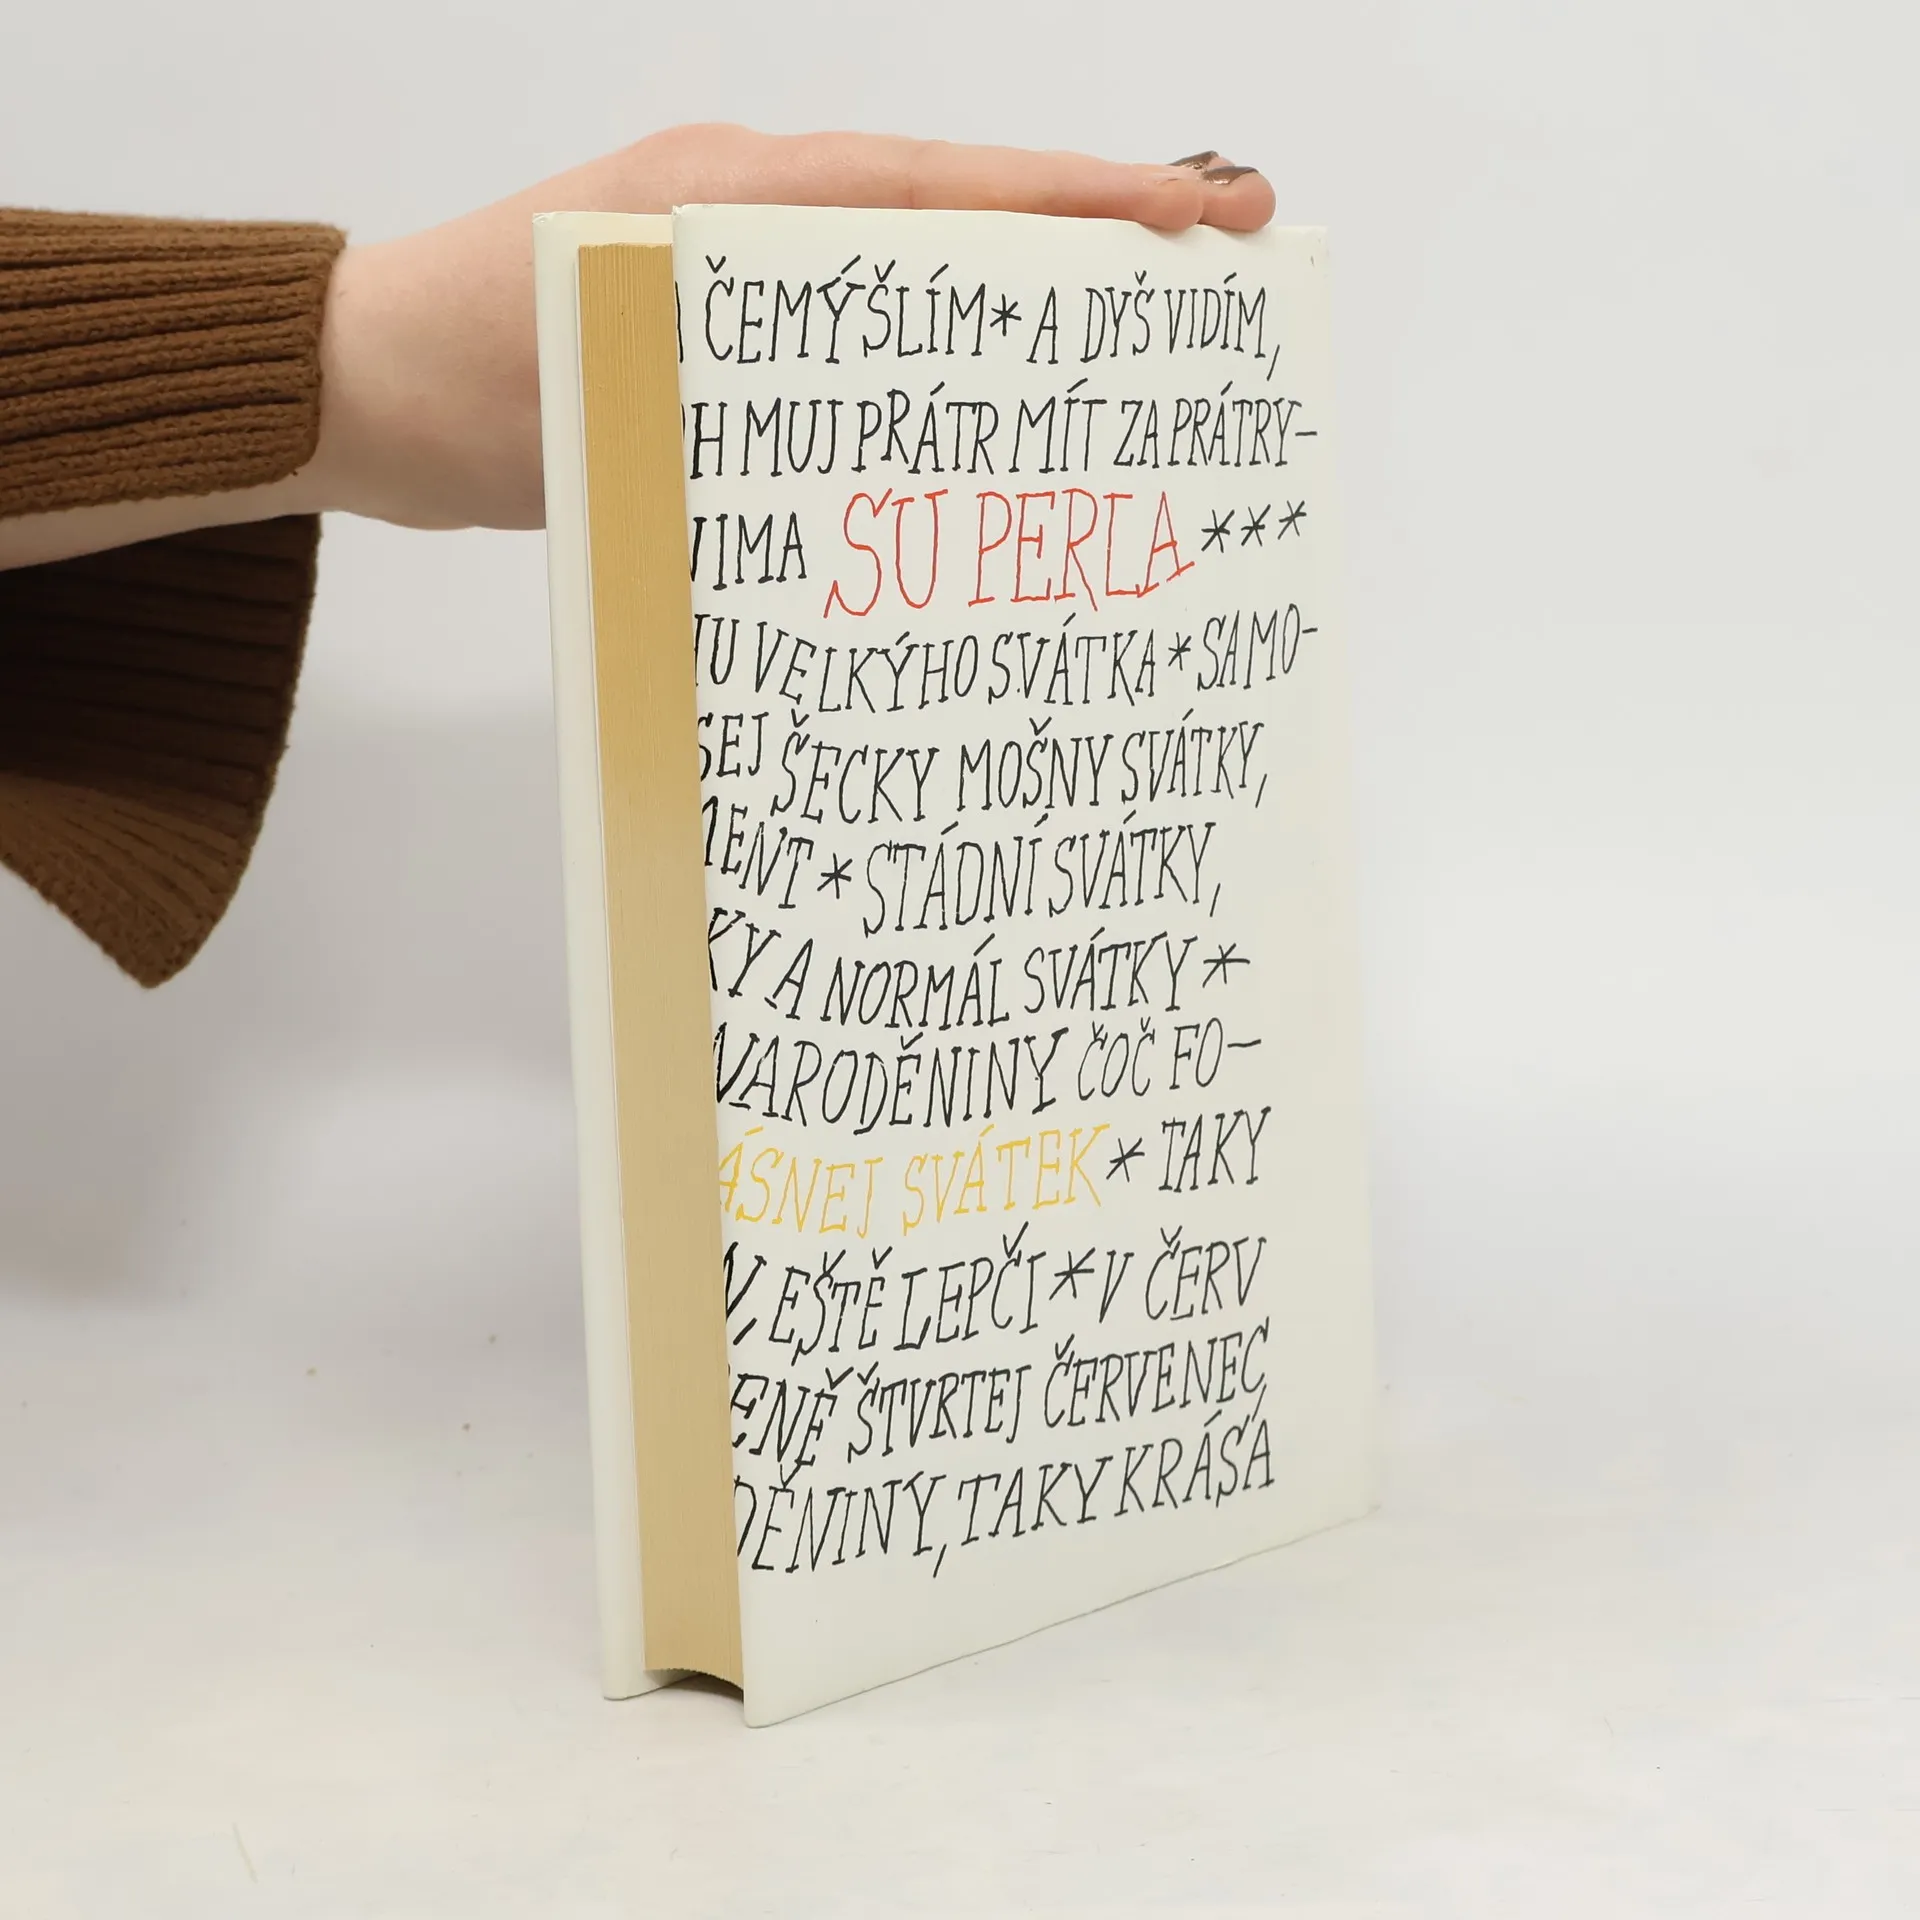 ČEMÝŠLÍM * A DYŠ VIDÍM,
H MUJ PRÁTR MÍT ZA PRÁTRY-
IMA SU PERLA ***
U VELKÝHO SVÁTKA * SAMO-
SEJ ŠECKY MOŠNY SVÁTKY,
MENT * STÁDNÍ SVÁTKY,
KY A NORMÁL SVÁTKY *
NARODĚNINY ČOČ FO-
ÁSNEJ SVÁTEK * TAKY
N, EŠTĚ LEPČI * V ČERV
ENĚ ŠTVRTEJ ČERVENEC,
DĚNINY, TAKY KRÁSA